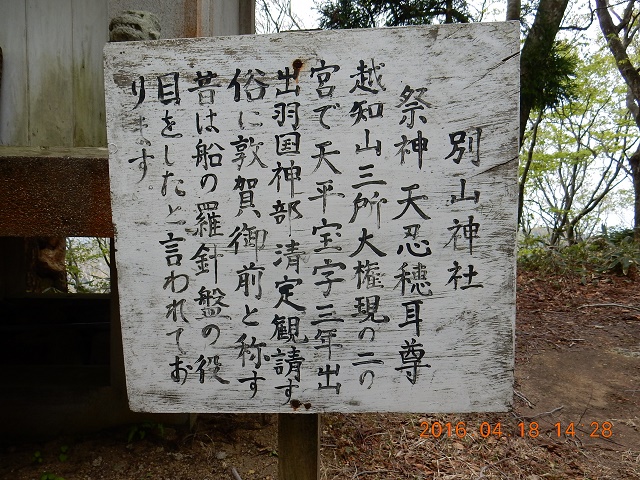 別山神社
祭神 天忍穂耳尊
越知山三所大権現の二の
宮で天平宝字三年出
出羽国神部清定観請す
俗に敦賀御前と称す
昔は船の羅針盤の役
目をしたと言われてお
ります。
2016.04.18 14:28